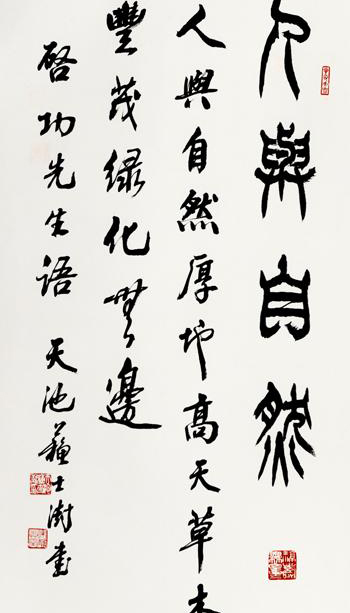 人與自然
人與自然厚地高天草木
豐茂綠化無邊
啓功先生語 天池蘇士澍書